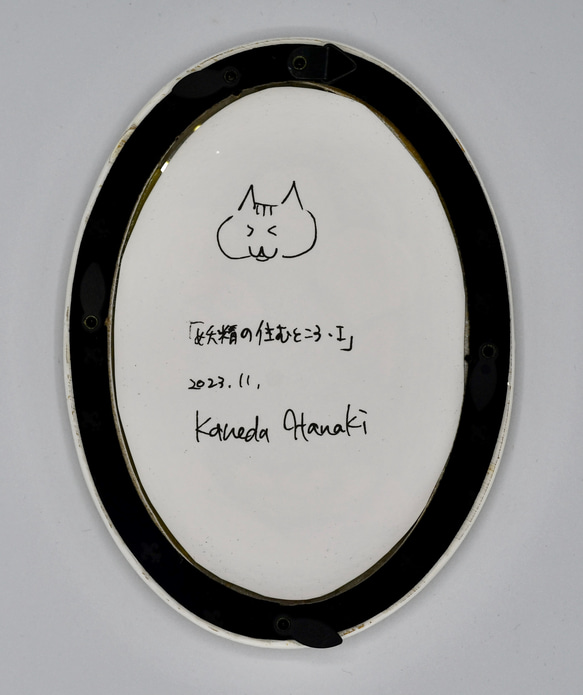 「妖精の住むところ・I」
2023.11.
Kaneda Hanaki